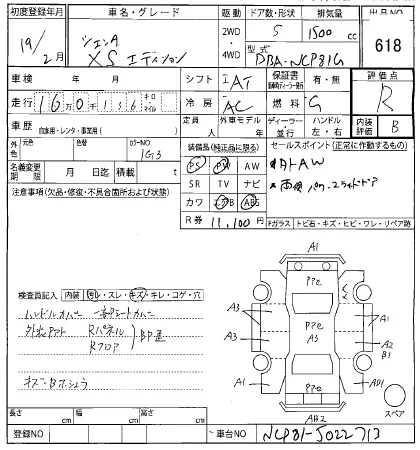 初度登録年月 車名・グレード 駆動 ドア数・形状 排気量 出品NO
19/2月 シエンタ XSエディション 2WD・4WD 5 1500 cc 618
型式 DBA-NCP81G
車検 年 月 シフト IAT 保証書 有・無 評価点 R
走行 160156 キロ マイル 冷房 AC 燃料 G
車歴 自家用・レンタ・事業用( ) 定員 人 外車モデル 年 ディーラー 並行 ハンドル 左・右 内装評価 B
外色 元色 色替 カラーNO 1G3 装備品(純正品に限る) セールスポイント(正常に作動するもの)
名義変更期限 月 日迄 積載 t PS PW AW 社外AW
SR TV ナビ 両側パワースライドドア
注意事項(欠品・修復・不具合箇所および状態) カワ エアB ABS
R券 11,100 Fガラス トビ石・キズ・ヒビ・ワレ・リペア跡
検査員記入 内装 汚レ・スレ・キズ・キレ・コゲ・穴
ハンドルカバー シートカバー
Rパネル
Rフロア
A1
PPe
A3 PPe A1
A3 A3 A2
B1
A1 PPe AD1
AB2
スペア
長さ cm 幅 cm 高さ cm
登録NO 車台NO NCP81-5022713